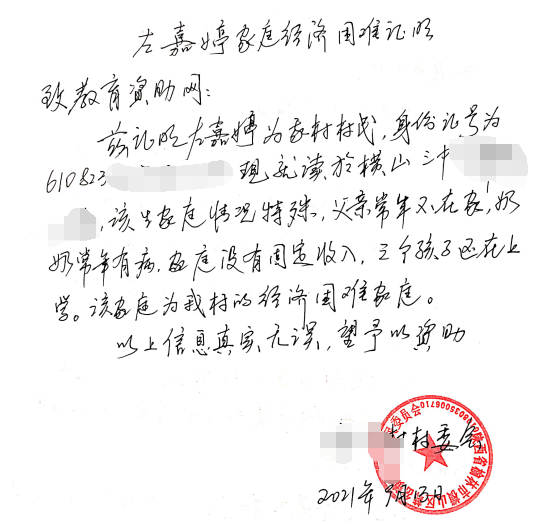 左嘉婷家庭经济困难证明
致教育资助网：
兹证明左嘉婷为我村村民，身份证号为
610823 现就读于横山三中
，该生家庭情况特殊，父亲常年不在家，奶
奶常年有病，家庭没有固定收入，三个孩子还在上
学。该家庭为我村的经济困难家庭。
以上信息真实无误，望予以资助
村村委会
2021年9月13日
陕西省榆林市横山区